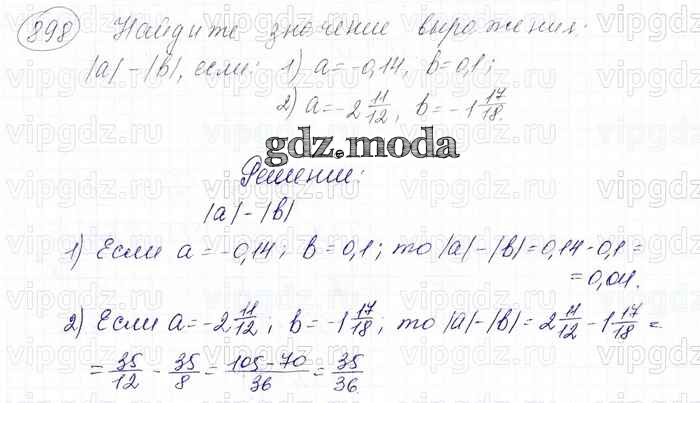 898 Найдите значение выражения:
|a|-|b|, если: 1) a=-0,14, b=0,1;
2) a=-2 11/12, b=-1 17/18.
gdz.moda
Решение:
|a|-|b|
1) Если a=-0,14; b=0,1; то |a|-|b|=0,14-0,1=
=0,04.
2) Если a=-2 11/12; b=-1 17/18; то |a|-|b|=2 11/12-1 17/18=
=35/12-35/8=105-70/36=35/36.